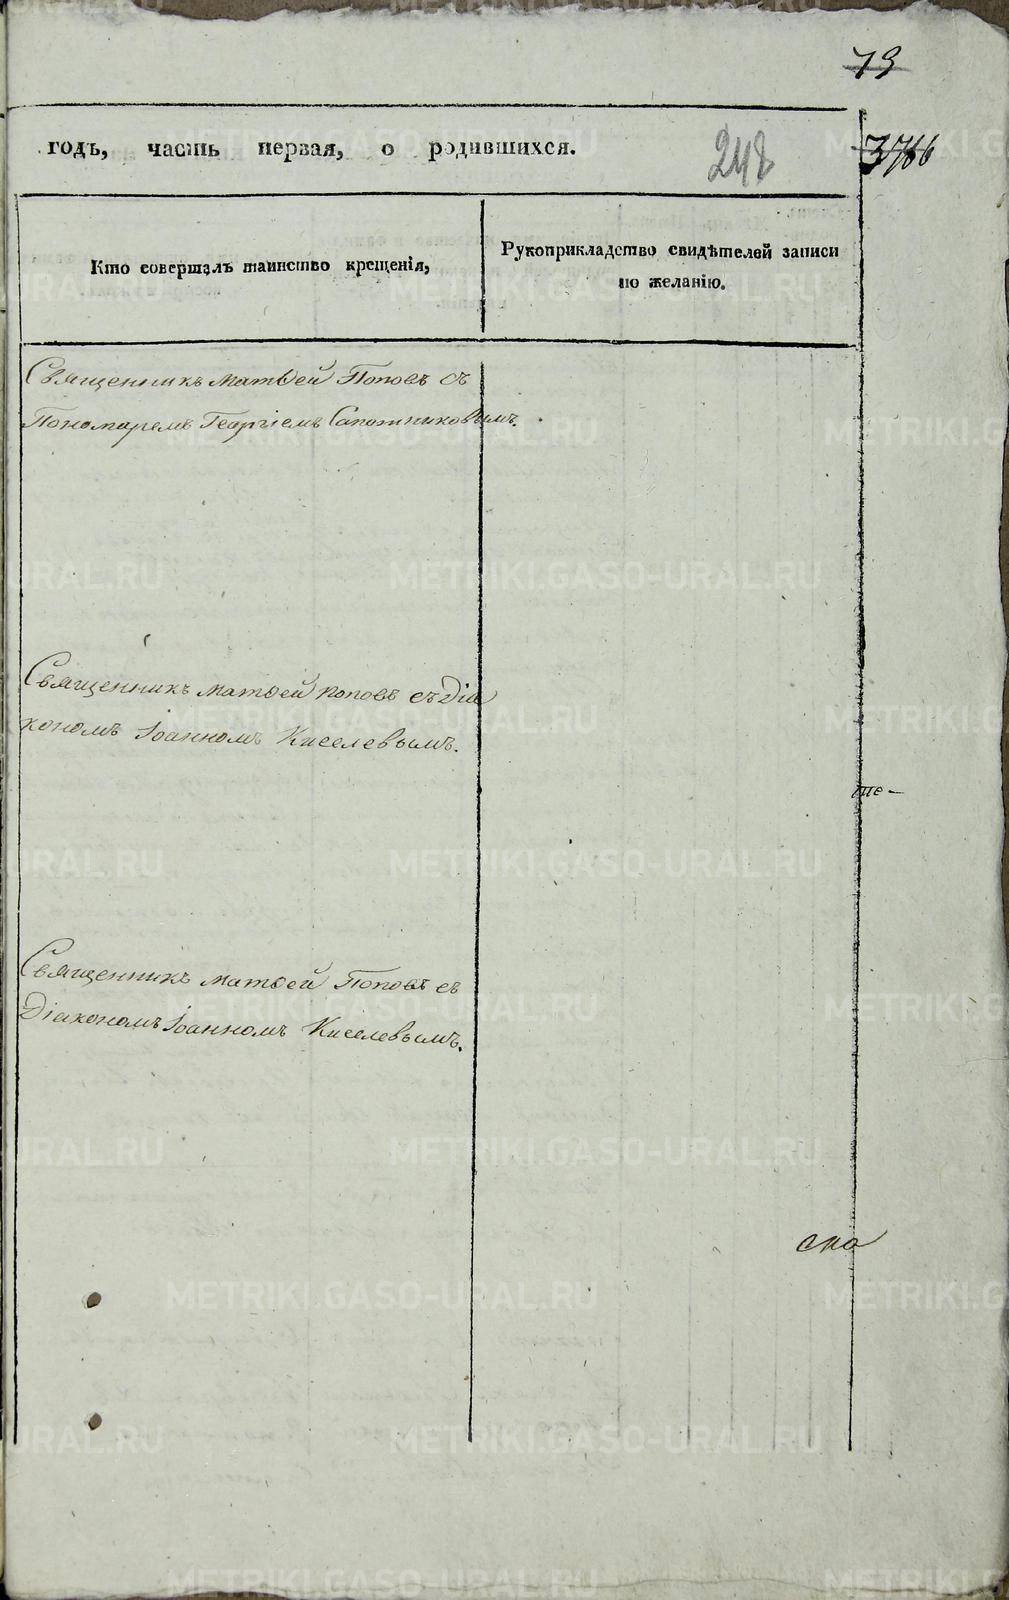 79
годъ, часть первая, о родившихся.
248
3766
Кто совершалъ таинство крещенія,
Рукоприкладство свидѣтелей записи
по желанію.
Священникъ Матѳей Поповъ съ
Пономаремъ Георгіемъ Сапожниковымъ.
Священникъ Матѳей Поповъ съ Діа
кономъ Іоанномъ Киселевымъ.
те-
Священникъ Матѳей Поповъ съ
Діакономъ Іоанномъ Киселевымъ.
ска
METRIKI.GASO-URAL.RU